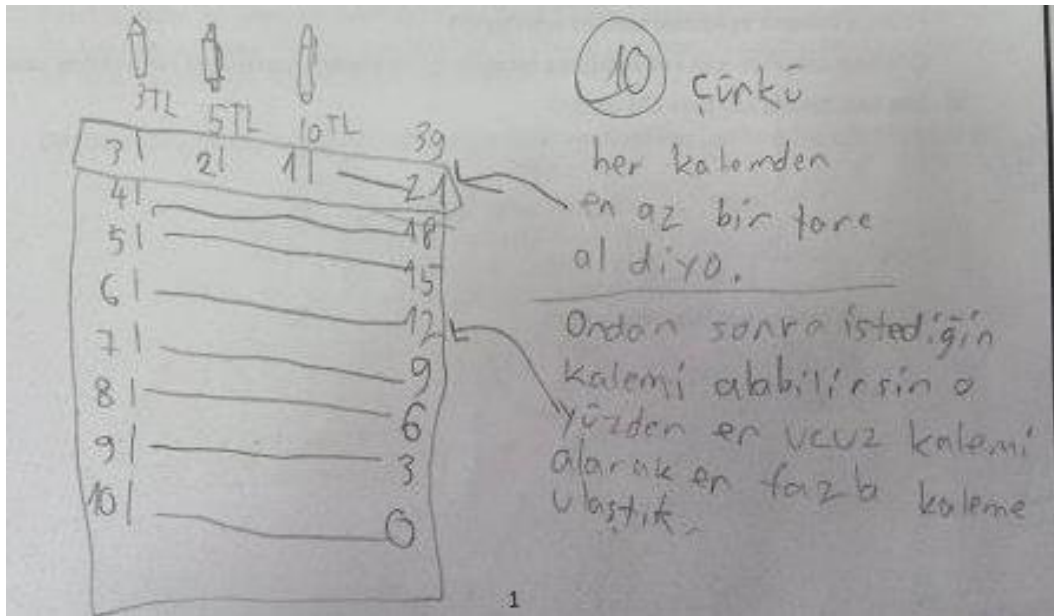 3TL 5TL 10TL 39
3| 2| 1| 21
4| 18
5| 15
6| 12
7| 9
8| 6
9| 3
10| 0
10 çünkü
her kalemden
en az bir tane
al diyo.
Ondan sonra istediğin
kalemi alabilirsin o
yüzden en ucuz kalemi
alarak en fazla kaleme
ulaştık.
1